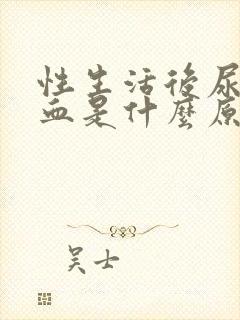 性生活後尿
血是什麼原
吴士